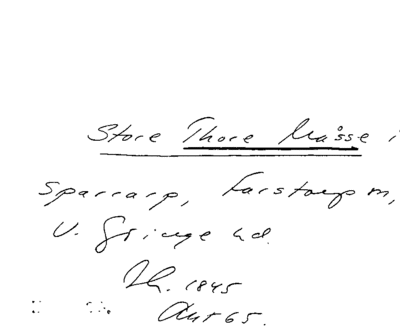 Store Thore Måsse i
Sparrarp, Farstorp m,
V. Göinge hd.
Th. 1845
Ant 65.